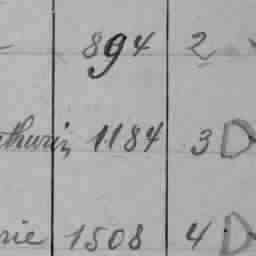 894 2
thurin 1184 3 D
rie 1508 4 D